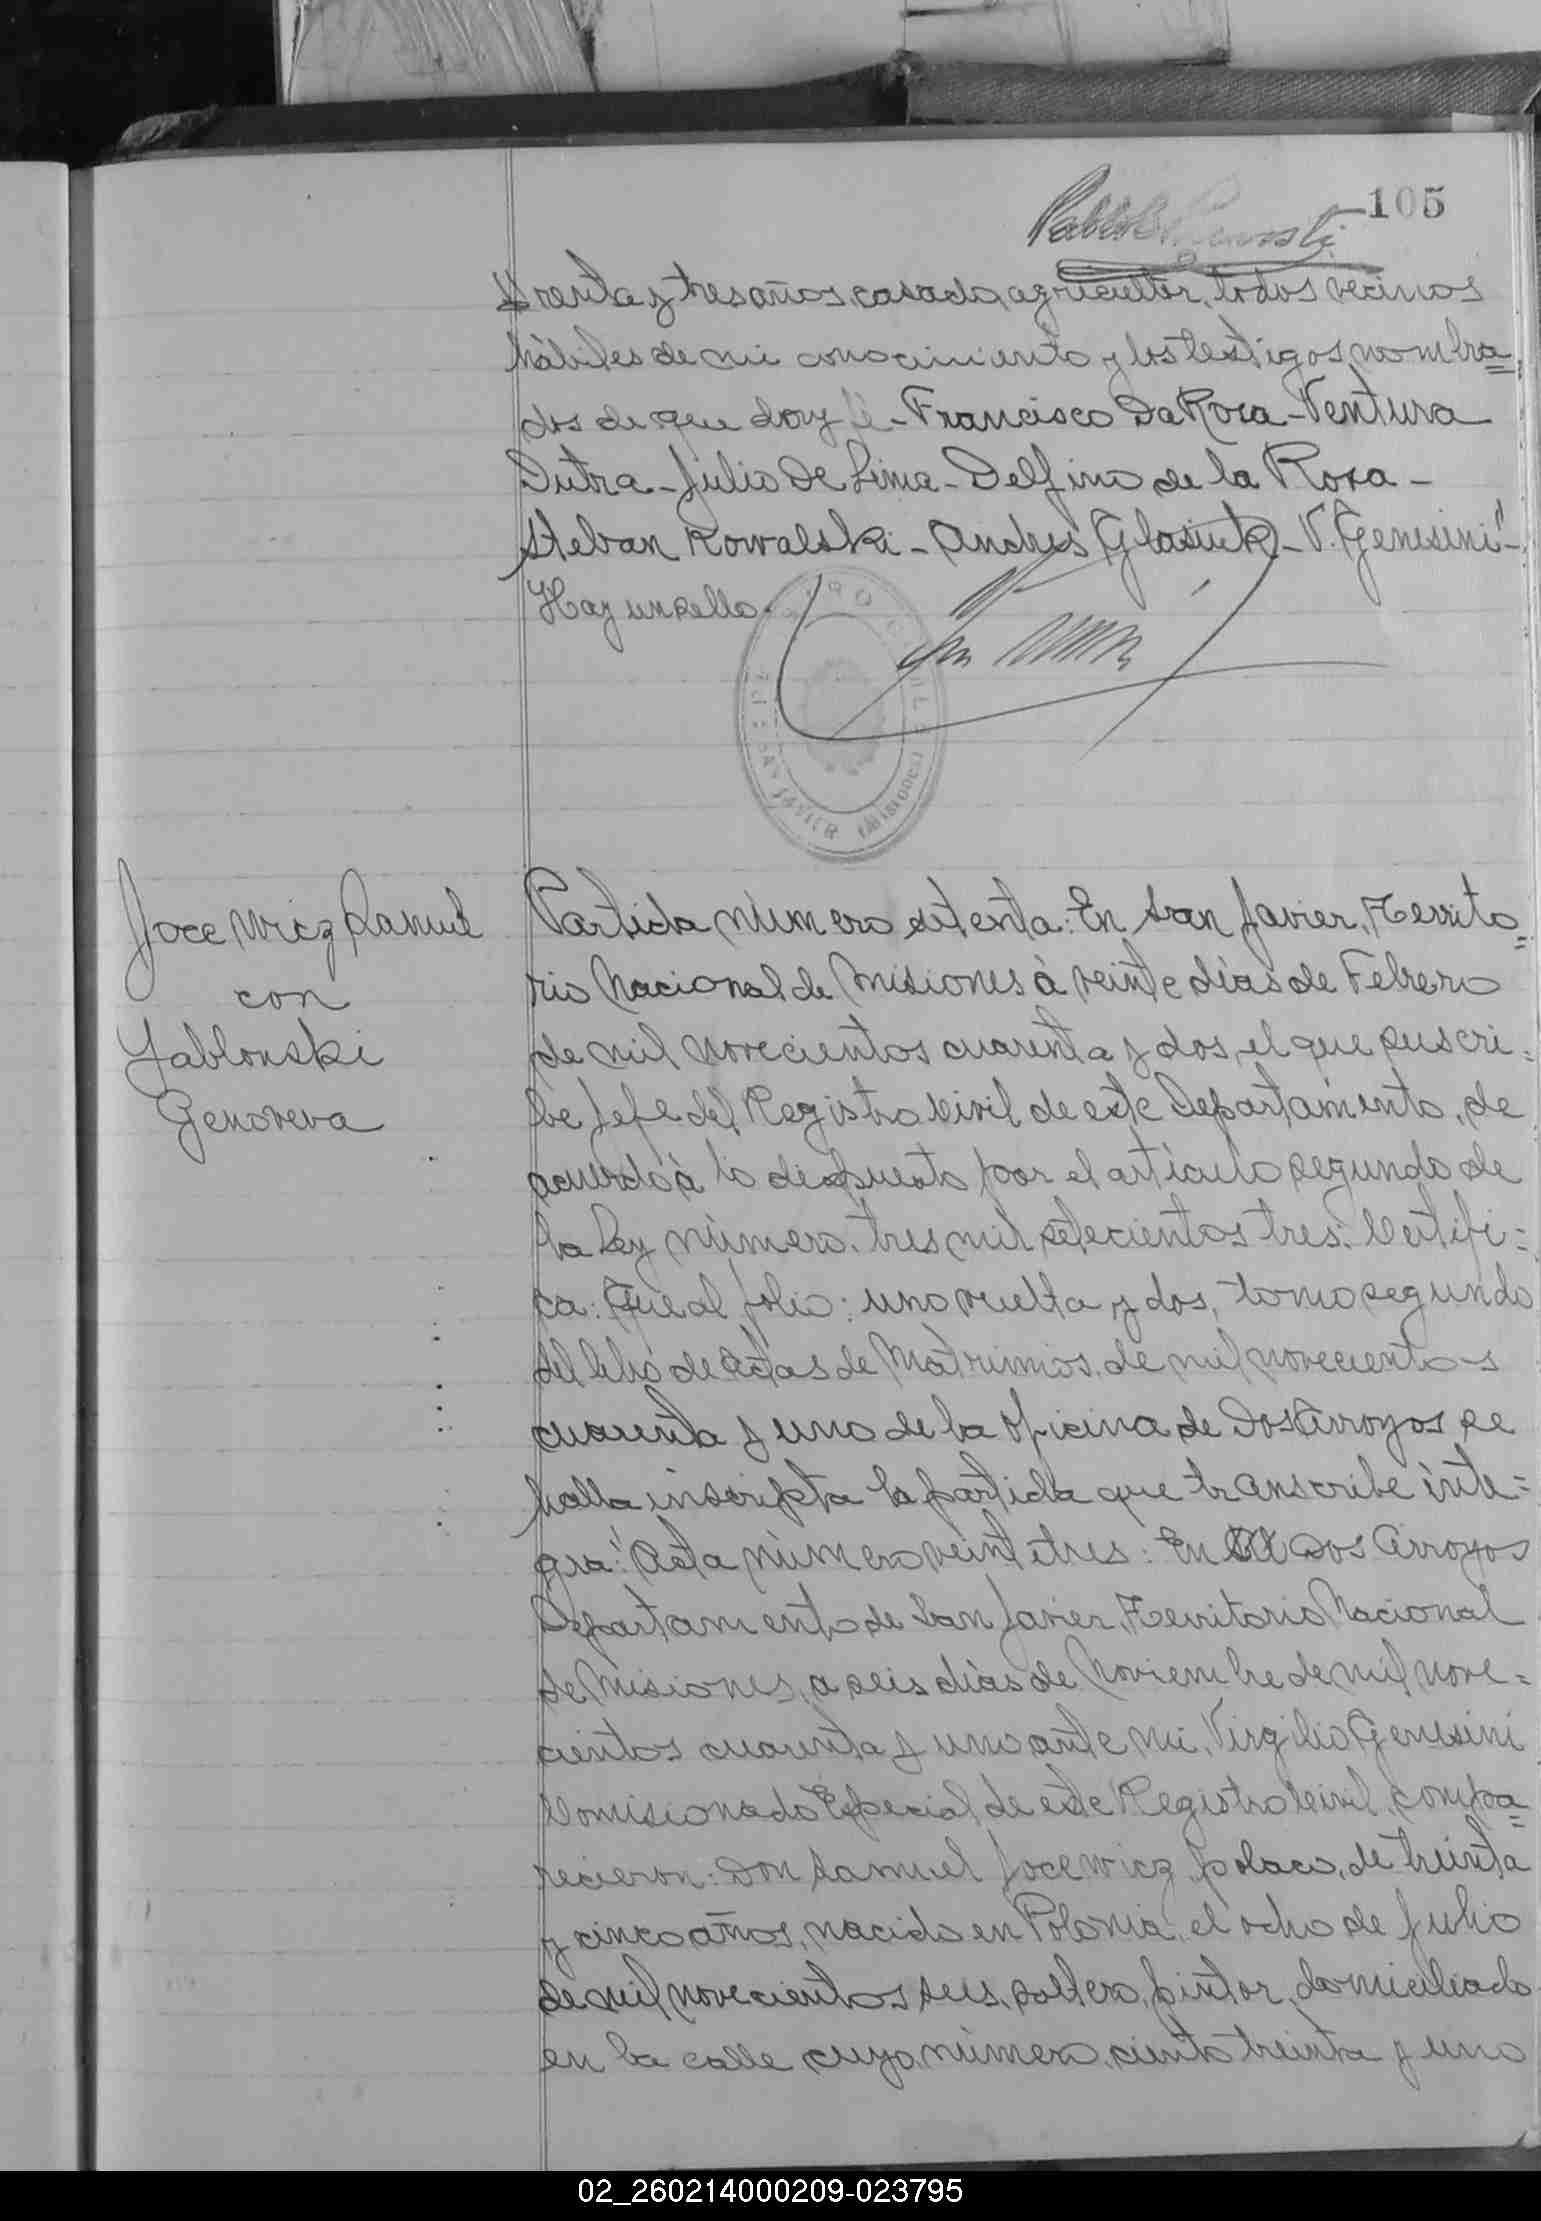 105
treinta y tres años, casado, agricultor, todos vecinos
hábiles de mi conocimiento y los testigos nombra=
dos de que doy fé - Francisco Da Rosa - Ventura
Dutra - Julio De Lima - Delfino de la Rosa -
Steban Kowalski - Andrés - V. Genesini" -
Hay un sello.
REGISTRO CIVIL
SAN JAVIER (MISIONES)
Jocewicz Samuel
con
Jablonski
Genoveva
Partida número setenta: En San Javier, Territo=
rio Nacional de Misiones à veinte días de Febrero
de mil novecientos cuarenta y dos, el que suscri=
be Jefe del Registro Civil de este Departamento, de
acuerdo à lo dispuesto por el artículo segundo de
la Ley número tres mil setecientos tres: Certifi=
ca: Que al folio: uno vuelta y dos, tomo segundo
del libro de Actas de Matrimios, de mil novecientos
cuarenta y uno de la oficina de Dos Arroyos se
halla inscripta la partida que transcribe ínte=
gra: "Acta número veintitres: En Dos Arroyos
Departamento de San Javier, Territorio Nacional
de Misiones, a seis días de Noviembre de mil nove=
cientos cuarenta y uno ante mi, Virgilio Genesini
Comisionado Especial de este Registro Civil, compa=
recieron: Don Samuel Jocewicz, polaco, de treinta
y cinco años, nacido en Polonia, el ocho de Julio
de mil novecientos seis, soltero, pintor, domiciliado
en la calle cuyo, número, ciento treinta y uno
02_260214000209-023795